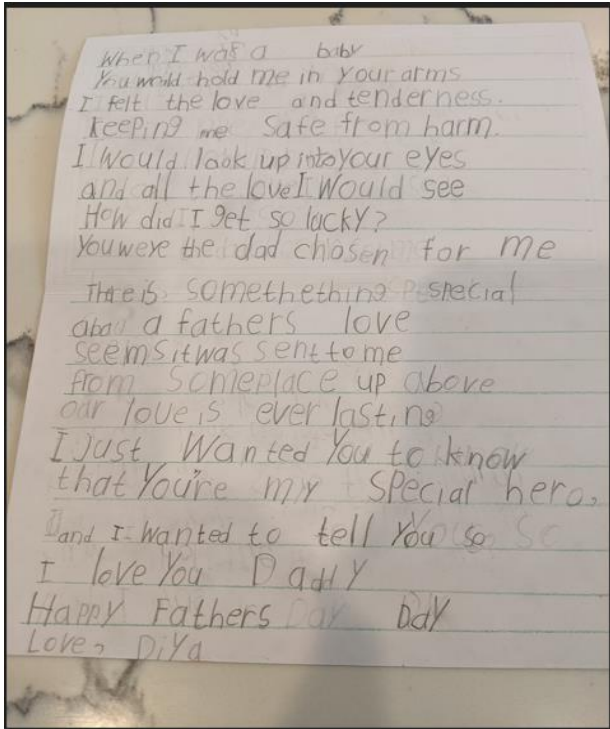 When I was a baby
You would hold me in your arms
I felt the love and tenderness.
keeping me safe from harm.
I Would look up into your eyes
and all the love I Would see
How did I get so lucky?
You were the dad chosen for me
There is somethething special
abou a fathers love
seems it was sent to me
from someplace up above
our love is ever lasting
I Just Wanted You to know
that You're my special hero,
and I wanted to tell You so
I love You Daddy
Happy Fathers Day
Love, Diya